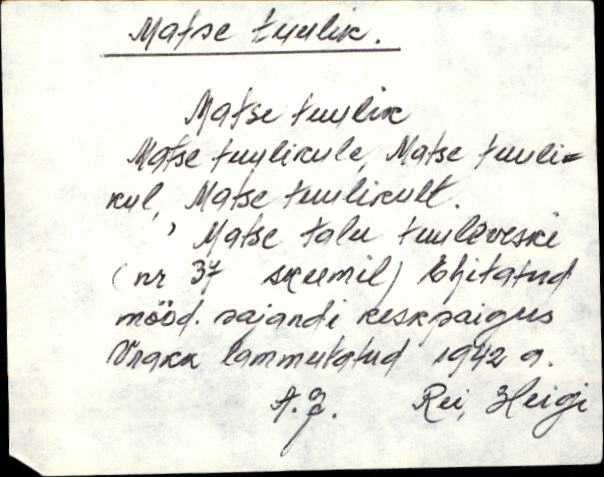 Matse tuulik.
Matse tuulik
Matse tuulikule, Matse tuuli=
kul, Matse tuulikult.
Matse talu tuuleveski
(nr 37 skeemil) Ehitatud
mööd. sajandi keskpaigus
Vrakk lammutatud 1942 a.
A.J. Rei, Heigi